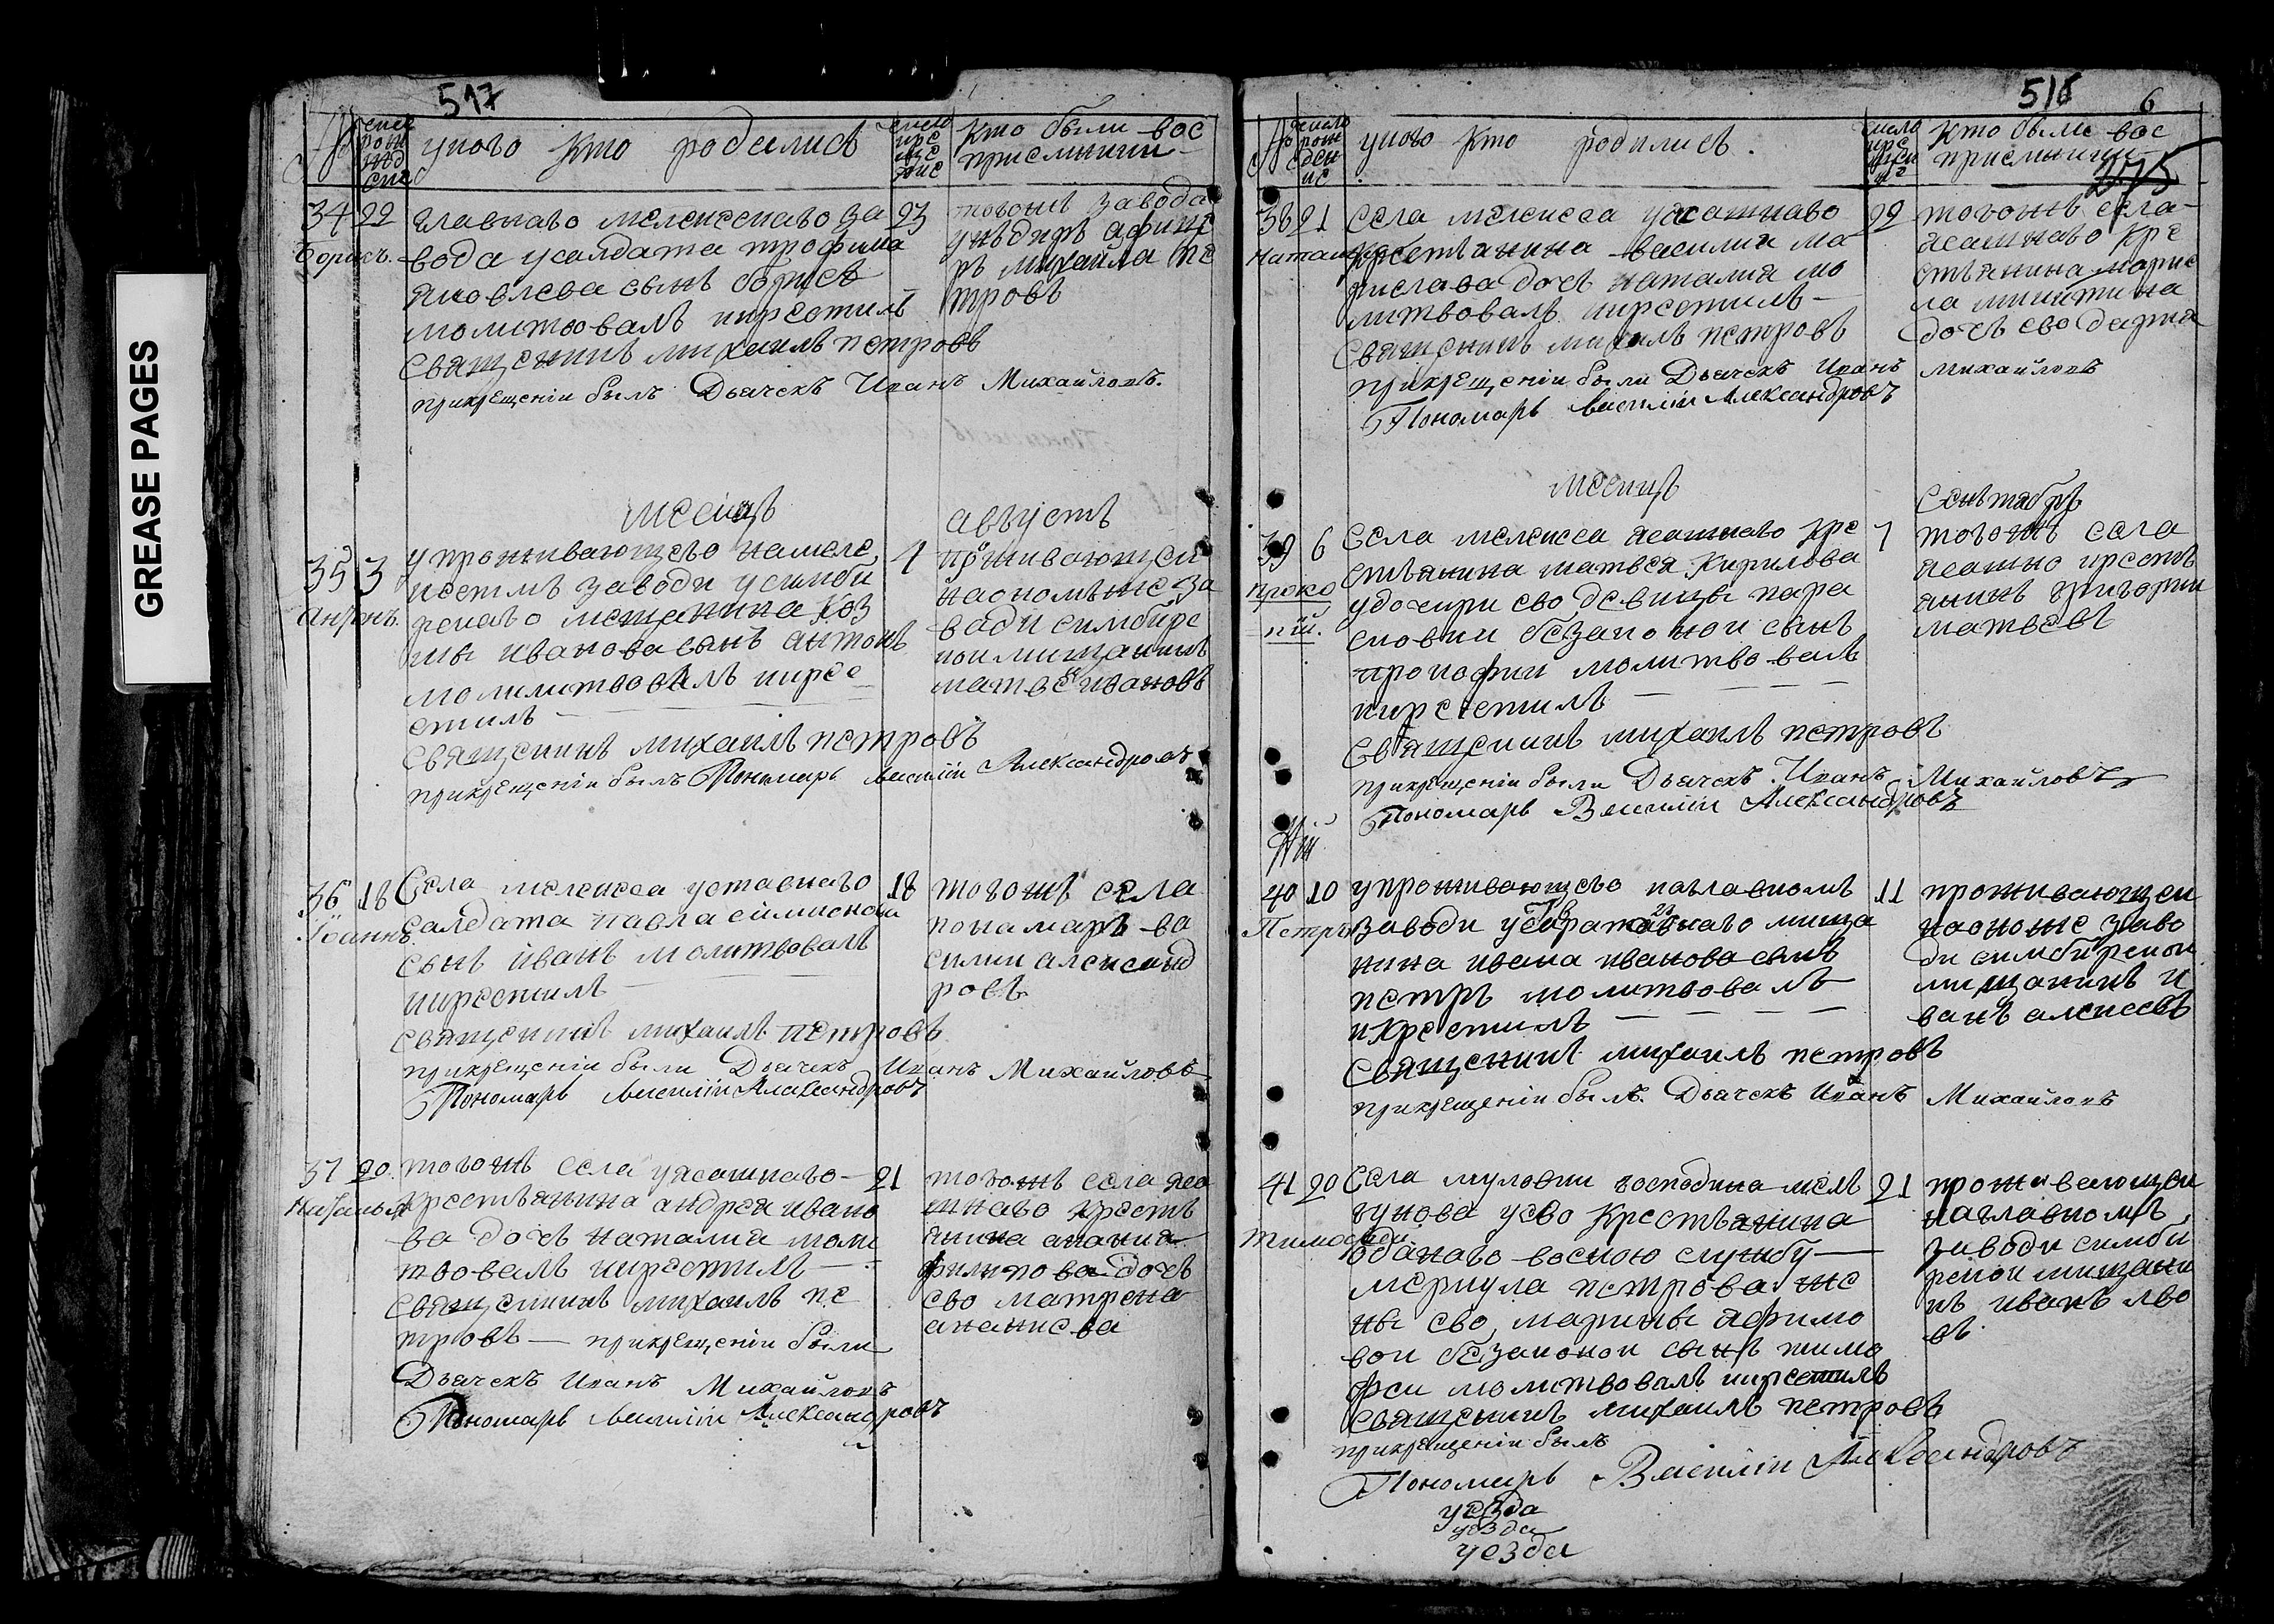 GREASE PAGES
517
№
число рождение
у кого кто родились
число крещение
Кто были вос
приемники
34
22
Борисъ.
главнаго мелекескаго за
вода усалдата трофима
яковлева сынъ борисъ
молитвовалъ икрестилъ
Священикъ михаилъ петровъ
прикрещеніи былъ Дьячекъ Иванъ Михайловъ.
23
тогожъ завода
михайла пе
тровъ
месицъ
августъ
35
3
Антонъ.
упроживающего намеле
кескомъ заводи усимби
рскаго мещанина коз
мы иванова сынъ антонъ
молилитвовалъ икрее
стилъ
Священикъ михаилъ петровъ
прикрещеніи былъ Пономарь Василіи Александровъ
проживающеи
завади симбирс
кои мищанинъ
матвеи ивановъ
36
18
Іоаннъ.
Села мелекеса уставнаго
салдата павла
сынъ иванъ молитвовалъ
икрестилъ
священикъ михаилъ петровъ
прикрещеніи были Дьячекъ Иванъ Михайловъ
Пономарь Василіи Александровъ
18
тогожъ села
понамарь ва
силии александ
ровъ
37
20
Наталья
тогожъ села уясашнаго
крестьянина андрея ивано
ва дочь наталиа моли
твовалъ икрестилъ
Священикъ михаилъ пе
тровъ — прикрещеніи были
Дьячекъ Иванъ Михайловъ
Пономарь Василіи Александровъ
21
тогожъ села яса
шнаго кресть
янина анания
филипова дочь
ево матрена
ананиева
518
6
275
№
число рождение
у кого кто родились.
число крещение
Кто были вос
приемники
38
21
Наталья
Села мелекеса уясашнаво
крестьянина василия ма
ркелава дочь наталия мо
литвовалъ икрестилъ
Священикъ михаилъ петровъ
прикрещеніи были Дьячекъ Иванъ Михайловъ
Пономарь Василіи Александровъ
22
тогожъ села
ясашнаго кре
стьянина
ла никитина
дочь ево дариа
месицъ
Сентябрь
39
6
Проко
пій.
Села мелекеса ясашнаго кре
стьянина матвея Кирилова
удочири ево девицы пара
сковии безаконои сынъ
прокофии молитвовалъ
икрестилъ
Священикъ михаилъ петровъ
прикрещеніи были Дьячекъ Иванъ Михайловъ
Пономарь Василіи Александровъ
7
тогожъ села
ясашно кресть
янинъ григории
матвеевъ
40
10
Петръ
упроживающего наглавномъ
заводи усаратовскаго мища
нина ивана иванова сынъ
петръ молитвовалъ
икрестилъ
Священикъ михаилъ петровъ
прикрещеніи былъ Дьячекъ Иванъ Михайловъ
11
проживающеи
наономже заво
ди симбирскои
мищанинъ и
ванъ алексеевъ
41
20
Тимофеи
Села муловки господина мел
гунова уево крестьянина
оданаго военою службу
меркула петрова же
ны ево марины
вои безаконои сынъ тимо
феи молитвовалъ икрестилъ
Священикъ михаилъ петровъ
прикрещеніи былъ
Пономарь Василіи Александровъ
21
проживающеи
наглавномъ
заводи симби
рскои мищани
нъ иванъ лво
въ
уезда
уезда
уезда